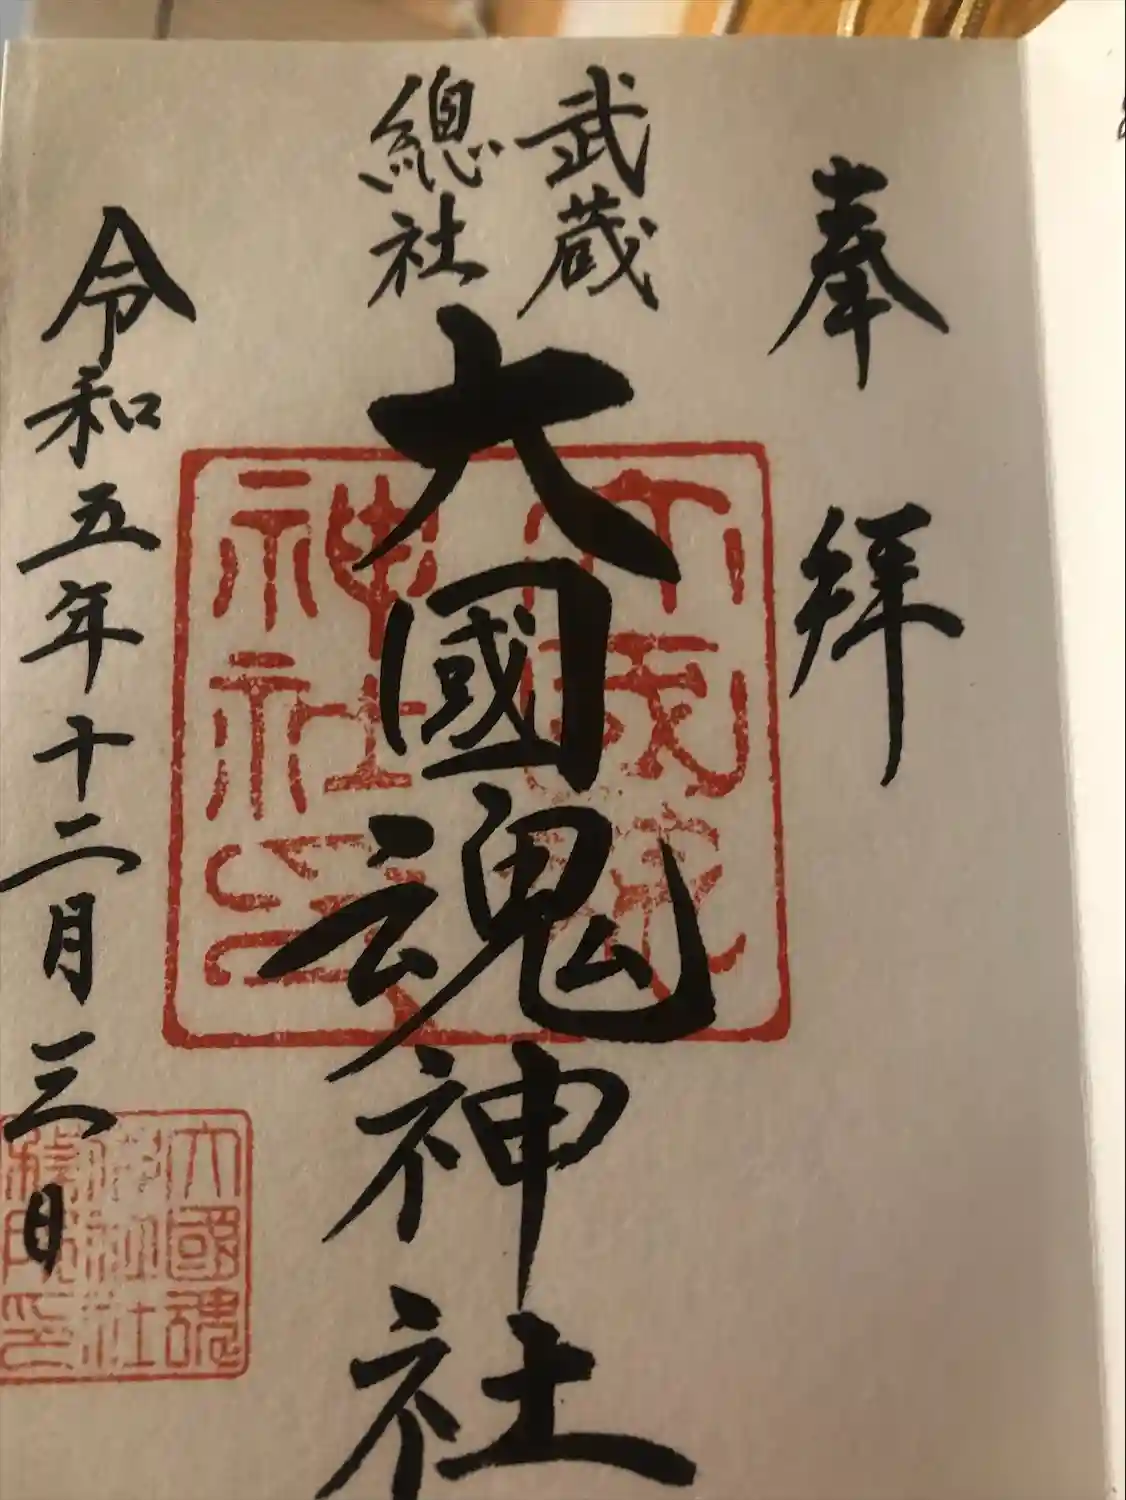 奉拝
武蔵
總社
大國魂神社
令和五年十二月三日
大國魂
神社印
大國魂
神社